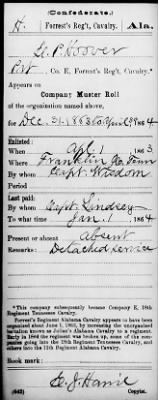 (Confederate.)
H. Forrest's Reg't, Cavalry. Ala.
L. P. Hoover
Pvt, Co. E, Forrest's Reg't, Cavalry.
Appears on
Company Muster Roll
of the organization named above,
for Dec. 31, 1863 to April 1864
Enlisted:
When Apl. 1, 1863
Where Franklin Co. Tenn
By whom Capt. Wisdom
Period
Last paid:
By whom Capt. Lindsey
To what time Jan. 1, 1864
Present or absent Absent
Remarks: Detached service
*This company subsequently became Company E, 18th
Regiment Tennessee Cavalry.
Forrest's Regiment Alabama Cavalry appears to have been
organized about June 1, 1863, by increasing the unorganized
battalion known as Julian's Alabama Cavalry to a regiment.
Early in 1864 the regiment was broken up, some of the companies
going into the 18th Regiment Tennessee Cavalry, and
others into the 11th Regiment Alabama Cavalry.
Book mark:
E. J. Harrie
(642) Copyist.